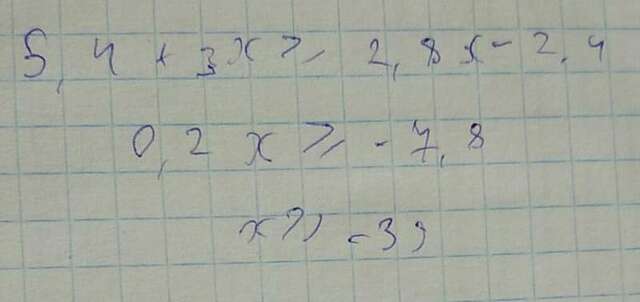 5,4 + 3x ⩾ 2,8x - 2,4
0,2 x ⩾ - 7,8
x ⩾ -39